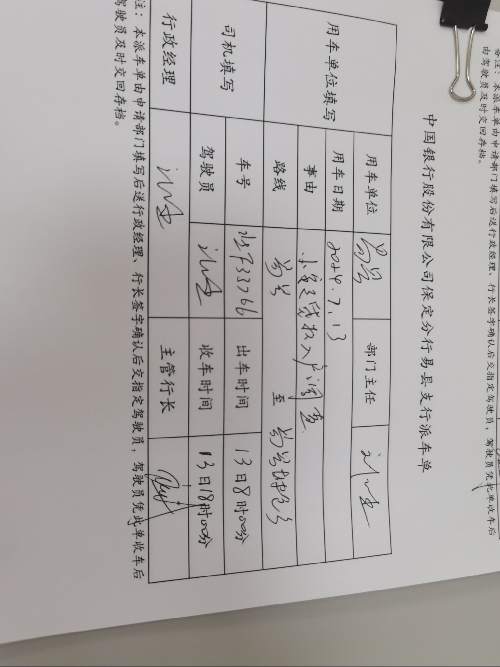 中国银行股份有限公司保定分行易县支行派车单
用车单位填写 用车单位 部门主任
用车日期 2024.7.13
事由
路线 至
司机填写 车号 出车时间 13日8时00分
驾驶员 收车时间 13日18时00分
行政经理 主管行长
注：本派车单由申请部门填写后送行政经理、行长签字确认后交指定驾驶员，驾驶员凭此单收车后
驾驶员及时交回存档。
备注：本派车单由申请部门填写后送行政经理、行长签字确认后交指定驾驶员，驾驶员凭此单收车后
由驾驶员及时交回存档。